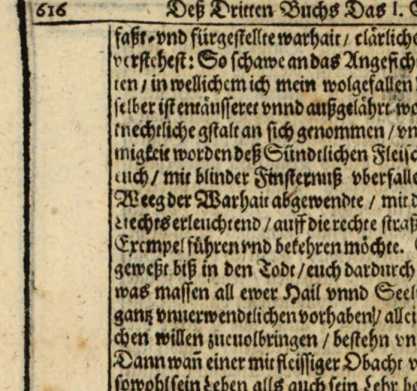 616 Deß Dritten Buchs Das I.
faßt-vnd fürgestellte warhait / clärliche
verstehest: So schawe an das Angesich
ten / in wellichem ich mein wolgefallen
selber ist entäusseret vnnd außgelährt wo
knechtliche gstalt an sich genommen / vn
migkeit worden deß Sündtlichen Fleisc
euch / mit blinder Finsternuß vberfalle
Weeg der Warhait abgewendte / mit d
Liechts erleuchtend / auff die rechte straß
Exempel führen vnd bekehren möchte.
geweßt biß in den Todt / euch dardurch
was massen all ewer Hail vnnd Seel
gantz vnuerwendtlichen vorhaben / allei
chen willen zuuolbringen / bestehn vn
Dann wañ einer mit fleissiger Obacht
sowohl sein Leben alls auch sein Lehr